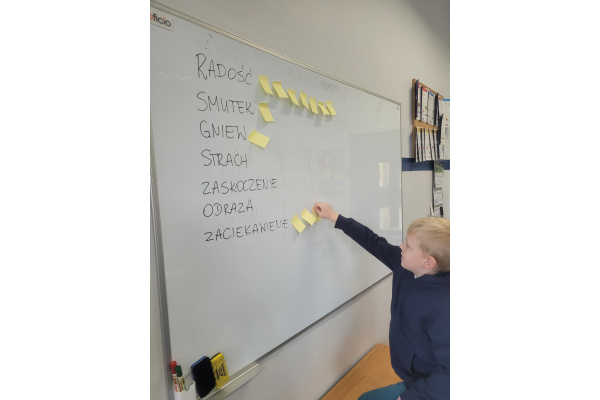 ficio
RADOŚĆ
SMUTEK
GNIEW
STRACH
ZASKOCZENIE
ODRAZA
ZACIEKAWIENIE